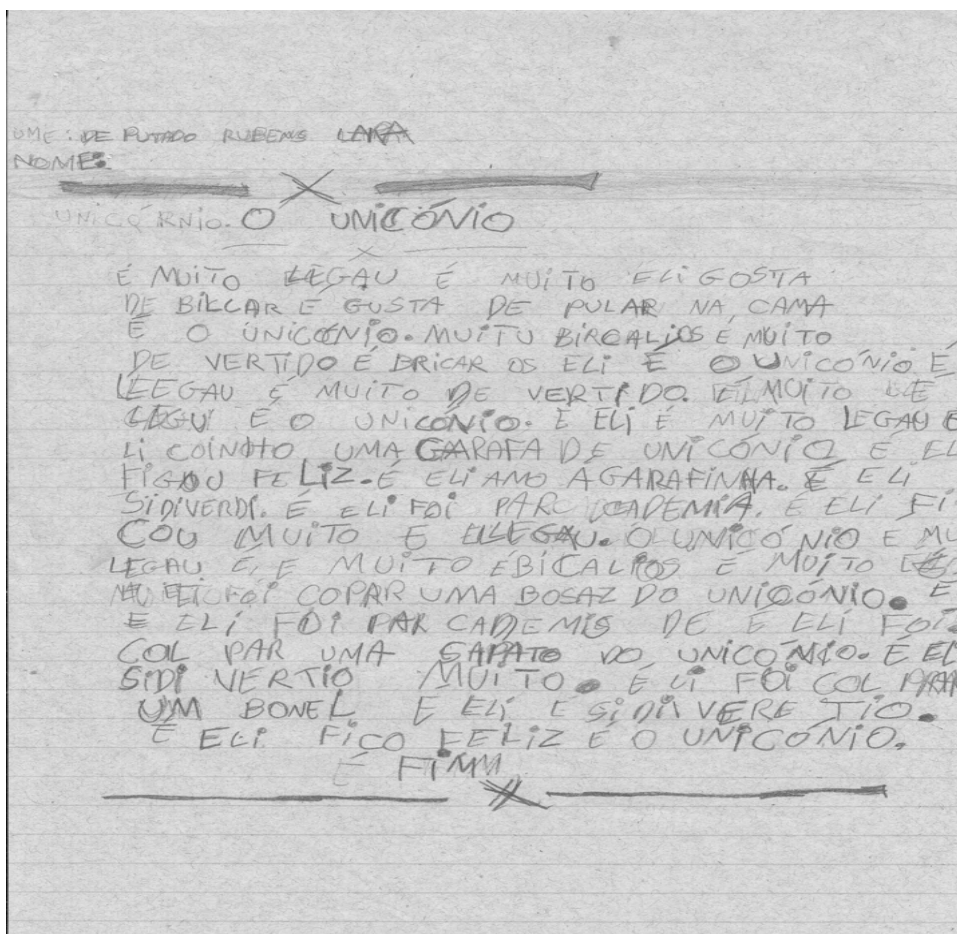 UME: DE PUTADO RUBENS LARA
NOME:
UNICÓRNIO. O UNICÓNIO
É MUITO LEGAU É MUITO ELI GOSTA
DE BILCAR E GUSTA DE PULAR NA CAMA
É O UNICÓNIO. MUITU E MUITO
DE VERTIDO É BRICAR OS ELI É O UNICÓNIO É
LEEGAU É MUITO DE VERTIDO. MUITO
LEGU É O UNICÓNIO. E ELI É MUITO LEGAU E
LI UMA GARAFA DE UNICÓNIO É EL
FIGOU FELIZ. É ELI AMO A GARAFINHA. É ELI
SIDIVERDI. É ELI FOI PARC CADEMIA. É ELI FI
COU MUITO E LLEGAU. O UNICÓNIO E MU
LEGAU E, E MUITO E MUITO
FOI COPAR UMA BOSAZ DO UNICÓNIO. E
E ELI FOI PAR CADEMIS DE É ELI FOI
COL PAR UMA SAPATO DO UNICÓNIO. É EL
SIDI VERTIO MUITO. E LI FOI COL PRAR
UM BONEL E ELI E SIDI VERE TIO.
É ELI FICO FELIZ É O UNICÓNIO.
É FIMM